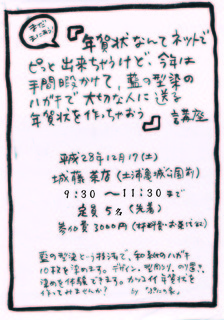 まだ
まにあう!
『年賀状なんてネットで
ピッと出来ちゃうけど、今年は
手間暇かけて、藍の型染の
ハガキで大切な人に送る
年賀状を作っちゃおう』
講座
平成28年12月17(土)
城藤茶店(土浦亀城公園前)
9:30 〜11:30まで
定員5名(先着)
参加費3000円(材料費・お茶代込)
藍の型染という技法で、和紙のハガキ
10枚を染めます。デザイン、型彫り、のり置き、
染めを体験できます。かっこイイ年賀状を
作ってみませんか?